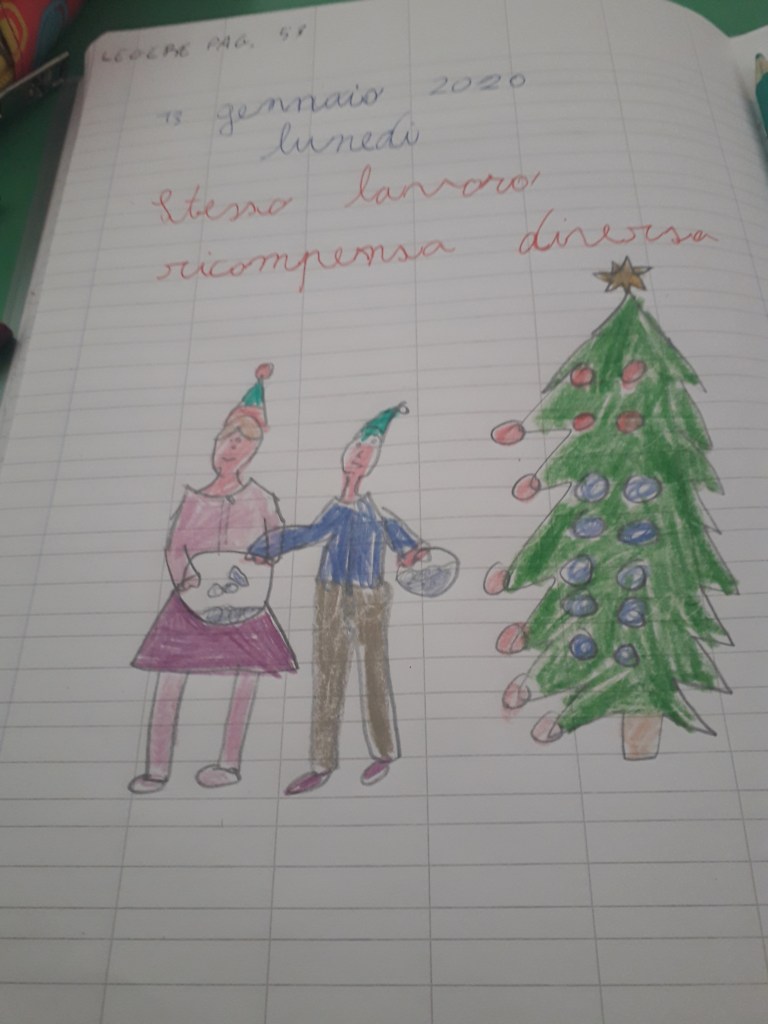 LEGERE PAG. 53
13 gennaio 2020
lunedì
Stesso lavoro,
ricompensa diversa